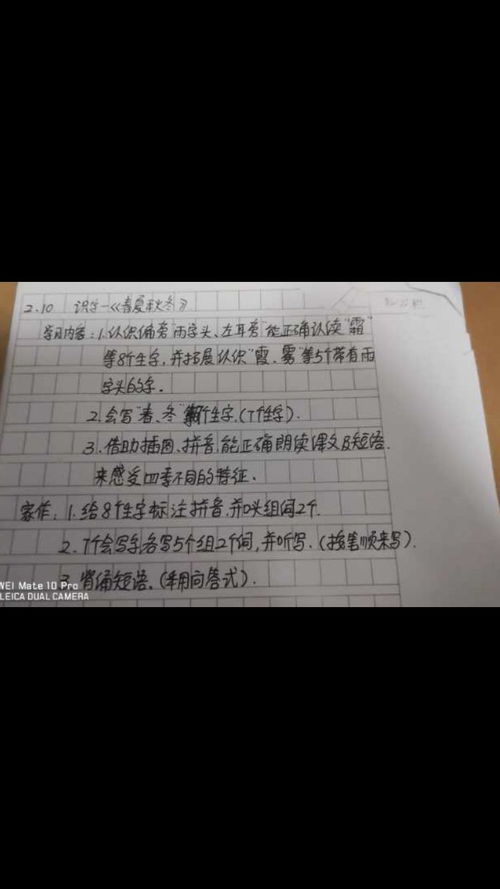 2.10 识字一《春夏秋冬》
学习内容:1.认识偏旁雨字头、左耳旁,能正确认读“霜”
等8个生字,并拓展认识“霞、雾”等5个带有雨
字头的字.
2.会写“春、冬”等7个生字.(7个生字).
3.借助插图、拼音,能正确朗读课文及短语.
来感受四季不同的特征.
家作:1.给8个生字标注拼音,并口头组词2个.
2.7个会写字各写5个组2个词,并听写.(按笔顺来写).
3.背诵短语.(采用问答式).
WEI Mate 10 Pro
LEICA DUAL CAMERA